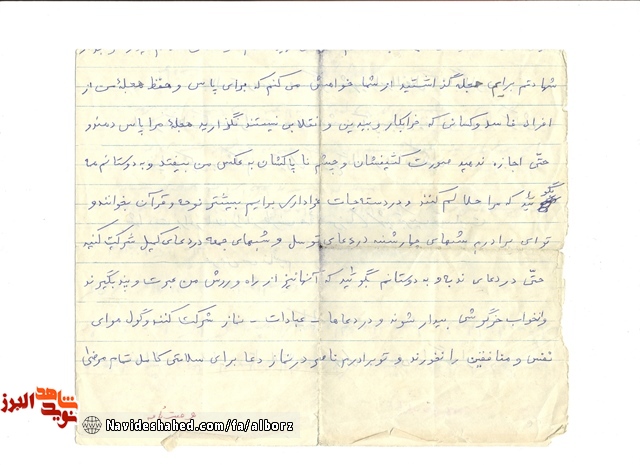 شهادتم برایم حجله گذاشتید از شما خواهش می کنم که برای پاس و حفظ حجله من از
افراد فاسد و کسانی که خرابکار و بیدین و انقلابی نیستند نگذارید حجله مرا پاس دهند و
حتّی اجازه ندهید صورت کثیفشان و چشم نا پاکشان به عکس من بیفتد و به دوستانم هم
بگوئید که مرا حلالم کنند و در دستجات عزاداری برایم بیشتر نوحه و قرآن بخوانند و
تو ای برادرم شبهای چهارشنبه در دعای توسل و شبهای جمعه در دعای کمیل شرکت کنید
حتّی در دعای ندبه و به دوستانم بگوئید که آنها نیز از راه و روش من عبرت و پند بگیرند
و از خواب خرگوشی بیدار شوند و در دعاها - عبادات - نماز شرکت کنند و گول هوای
نفس و منافقین را نخورند و تو برادرم ناصر در نماز دعا برای سلامتی کامل تمام مرضی
نوید شاهد البرز
Navideshahed.com/fa/alborz